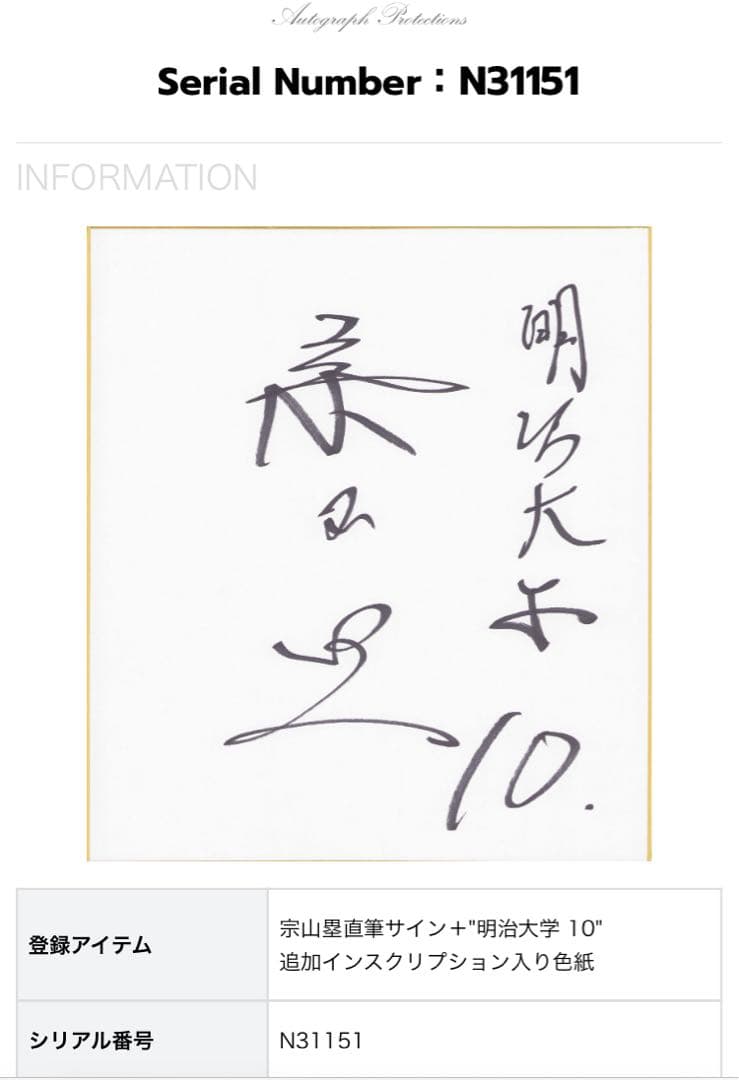 Autograph Protections
Serial Number：N31151
INFORMATION
明治大学
10.
宗山塁
登録アイテム
宗山塁直筆サイン＋"明治大学 10"
追加インスクリプション入り色紙
シリアル番号
N31151